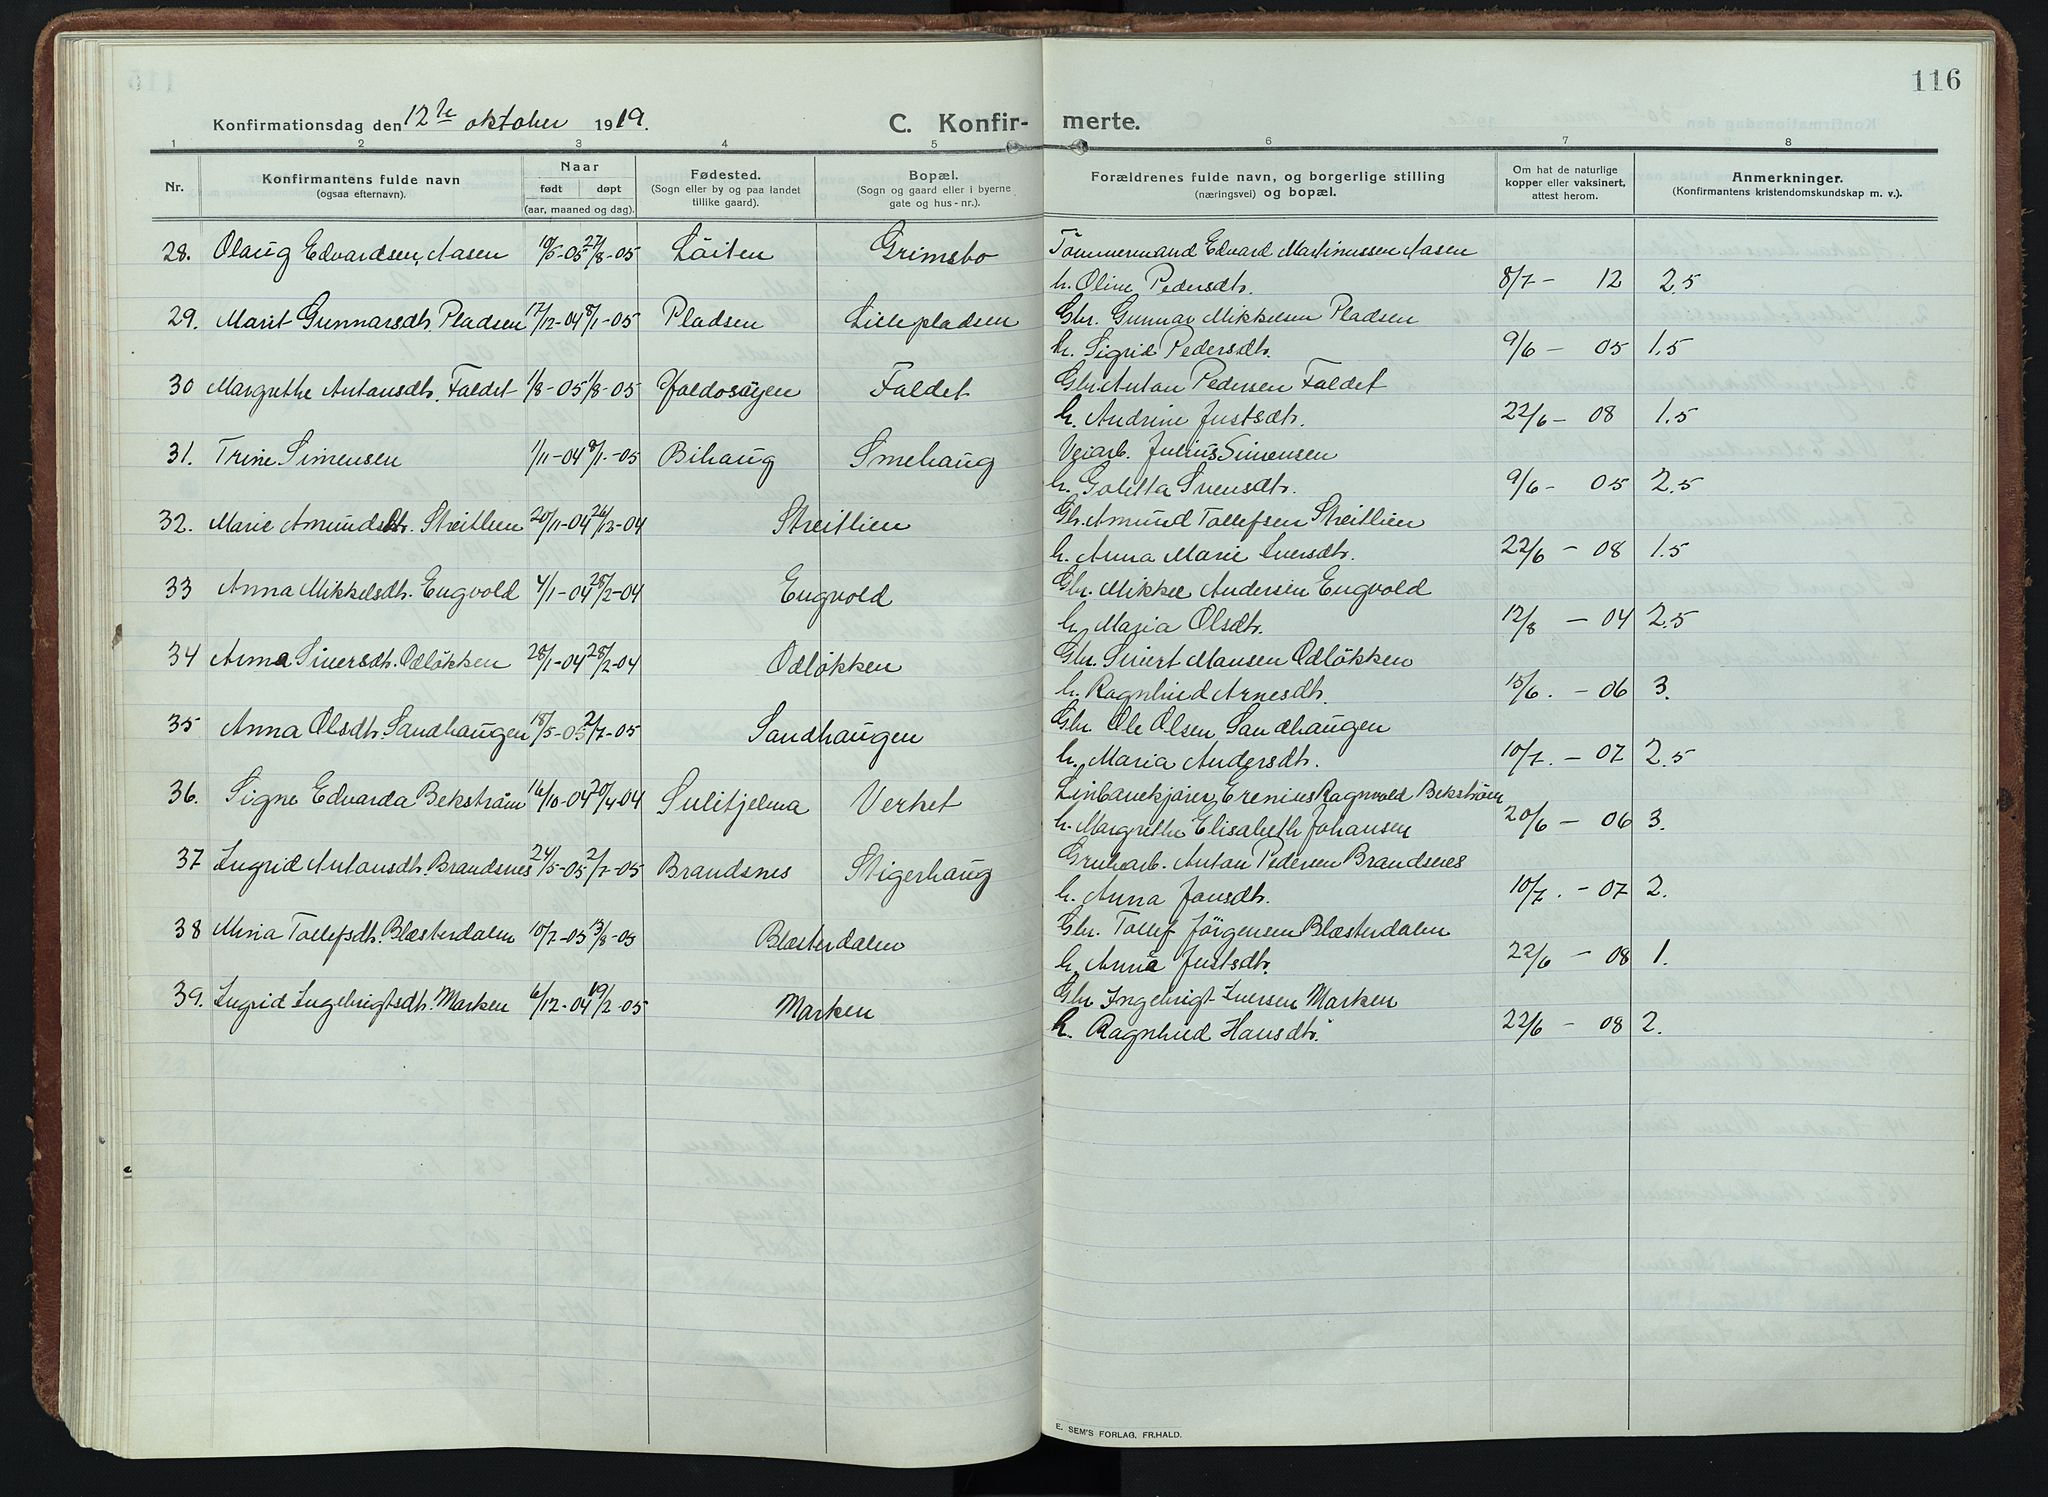 116
Konfirmationsdag den 12te oktober 1919.
C. Konfirmerte.
1 2 3 4 5 6 7 8
Nr. Konfirmantens fulde navn (ogsaa efternavn). Naar født døpt (aar, maaned og dag). Fødested. (Sogn eller by og paa landet tillike gaard). Bopæl. (Sogn og gaard eller i byerne gate og hus-nr.). Forældrenes fulde navn, og borgerlige stilling (næringsvei) og bopæl. Om hat de naturlige kopper eller vaksinert, attest herom. Anmerkninger. (Konfirmantens kristendomskundskap m. v.).
28. Olaug Edvardsen, Aasen 19/5-05 27/8-05 Löiten Grimsbo Tömmermand Edvard Martinussen Aasen
h. Oline Pedersdtr. 8/7 - 12 2.5
29. Marit Gunnarsdtr. Pladsen 17/12-04 8/1-05 Pladsen Lillepladsen Gbr. Gunnar Mikkelsen Pladsen
h. Sigrid Pedersdtr. 9/6 - 05 1.5
30 Margrethe Antonsdtr. Faldet 1/8-05 1/8-05 Faldet Gbr. Anton Pedersen Faldet
h. Andrine Justsdtr. 22/6 - 08 1.5
31. Trine Simensen 1/11-04 8/1-05 Bihaug Smehaug Veiarb. Julius Simensen
h. Goletta Svensdtr. 9/6 - 05 2.5
32. Marie Amundsdtr. Streitlien 20/11-04 26/12-04 Streitlien Gbr. Amund Tollefsen Streitlien
h. Anna Marie Iversdtr. 22/6 - 08 1.5
33 Anna Mikkelsdtr. Engvold 4/1-04 28/2-04 Engvold Gbr. Mikkel Andersen Engvold
h. Maria Olsdtr. 12/8 - 04 2.5
34 Anna Siversdtr. Odlökken 28/1-04 28/2-04 Odlökken Gbr. Sivert Hansen Odlökken
h. Ragnhild Arnesdtr. 15/6. - 06 3.
35 Anna Olsdtr. Sandhaugen 18/5-05 2/7-05 Sandhaugen Gbr. Ole Olsen Sandhaugen
h. Maria Andersdtr. 10/7. - 07 2.5
36. Signe Edvarda Bekström 16/10-04 20/4-04 Sulitjelma Verket Linbanekjører Erenius Ragnvold Bekström
h. Margrethe Elisabeth Johansen 20/6 - 06 3.
37 Ingrid Antonsdtr. Brandsnes 24/5-05 2/7-05 Brandsnes Stigerhaug Grubarb. Anton Pedersen Brandsnes
h. Anna Jonsdtr. 10/7. - 07 2.
38 Mina Tollefsdtr. Blæsterdalen 10/7-05 13/8-05 Blæsterdalen Gbr. Tollef Jörgensen Blæsterdalen
h. Anne Justsdtr. 22/6 - 08 1.
39. Ingrid Ingebrigtsdtr. Marken 6/12-04 19/2-05 Marken Gbr Ingebrigt Iversen Marken
h. Ragnhild Hansdtr. 22/6 - 08 2.
E. SEM'S FORLAG, FR.HALD.